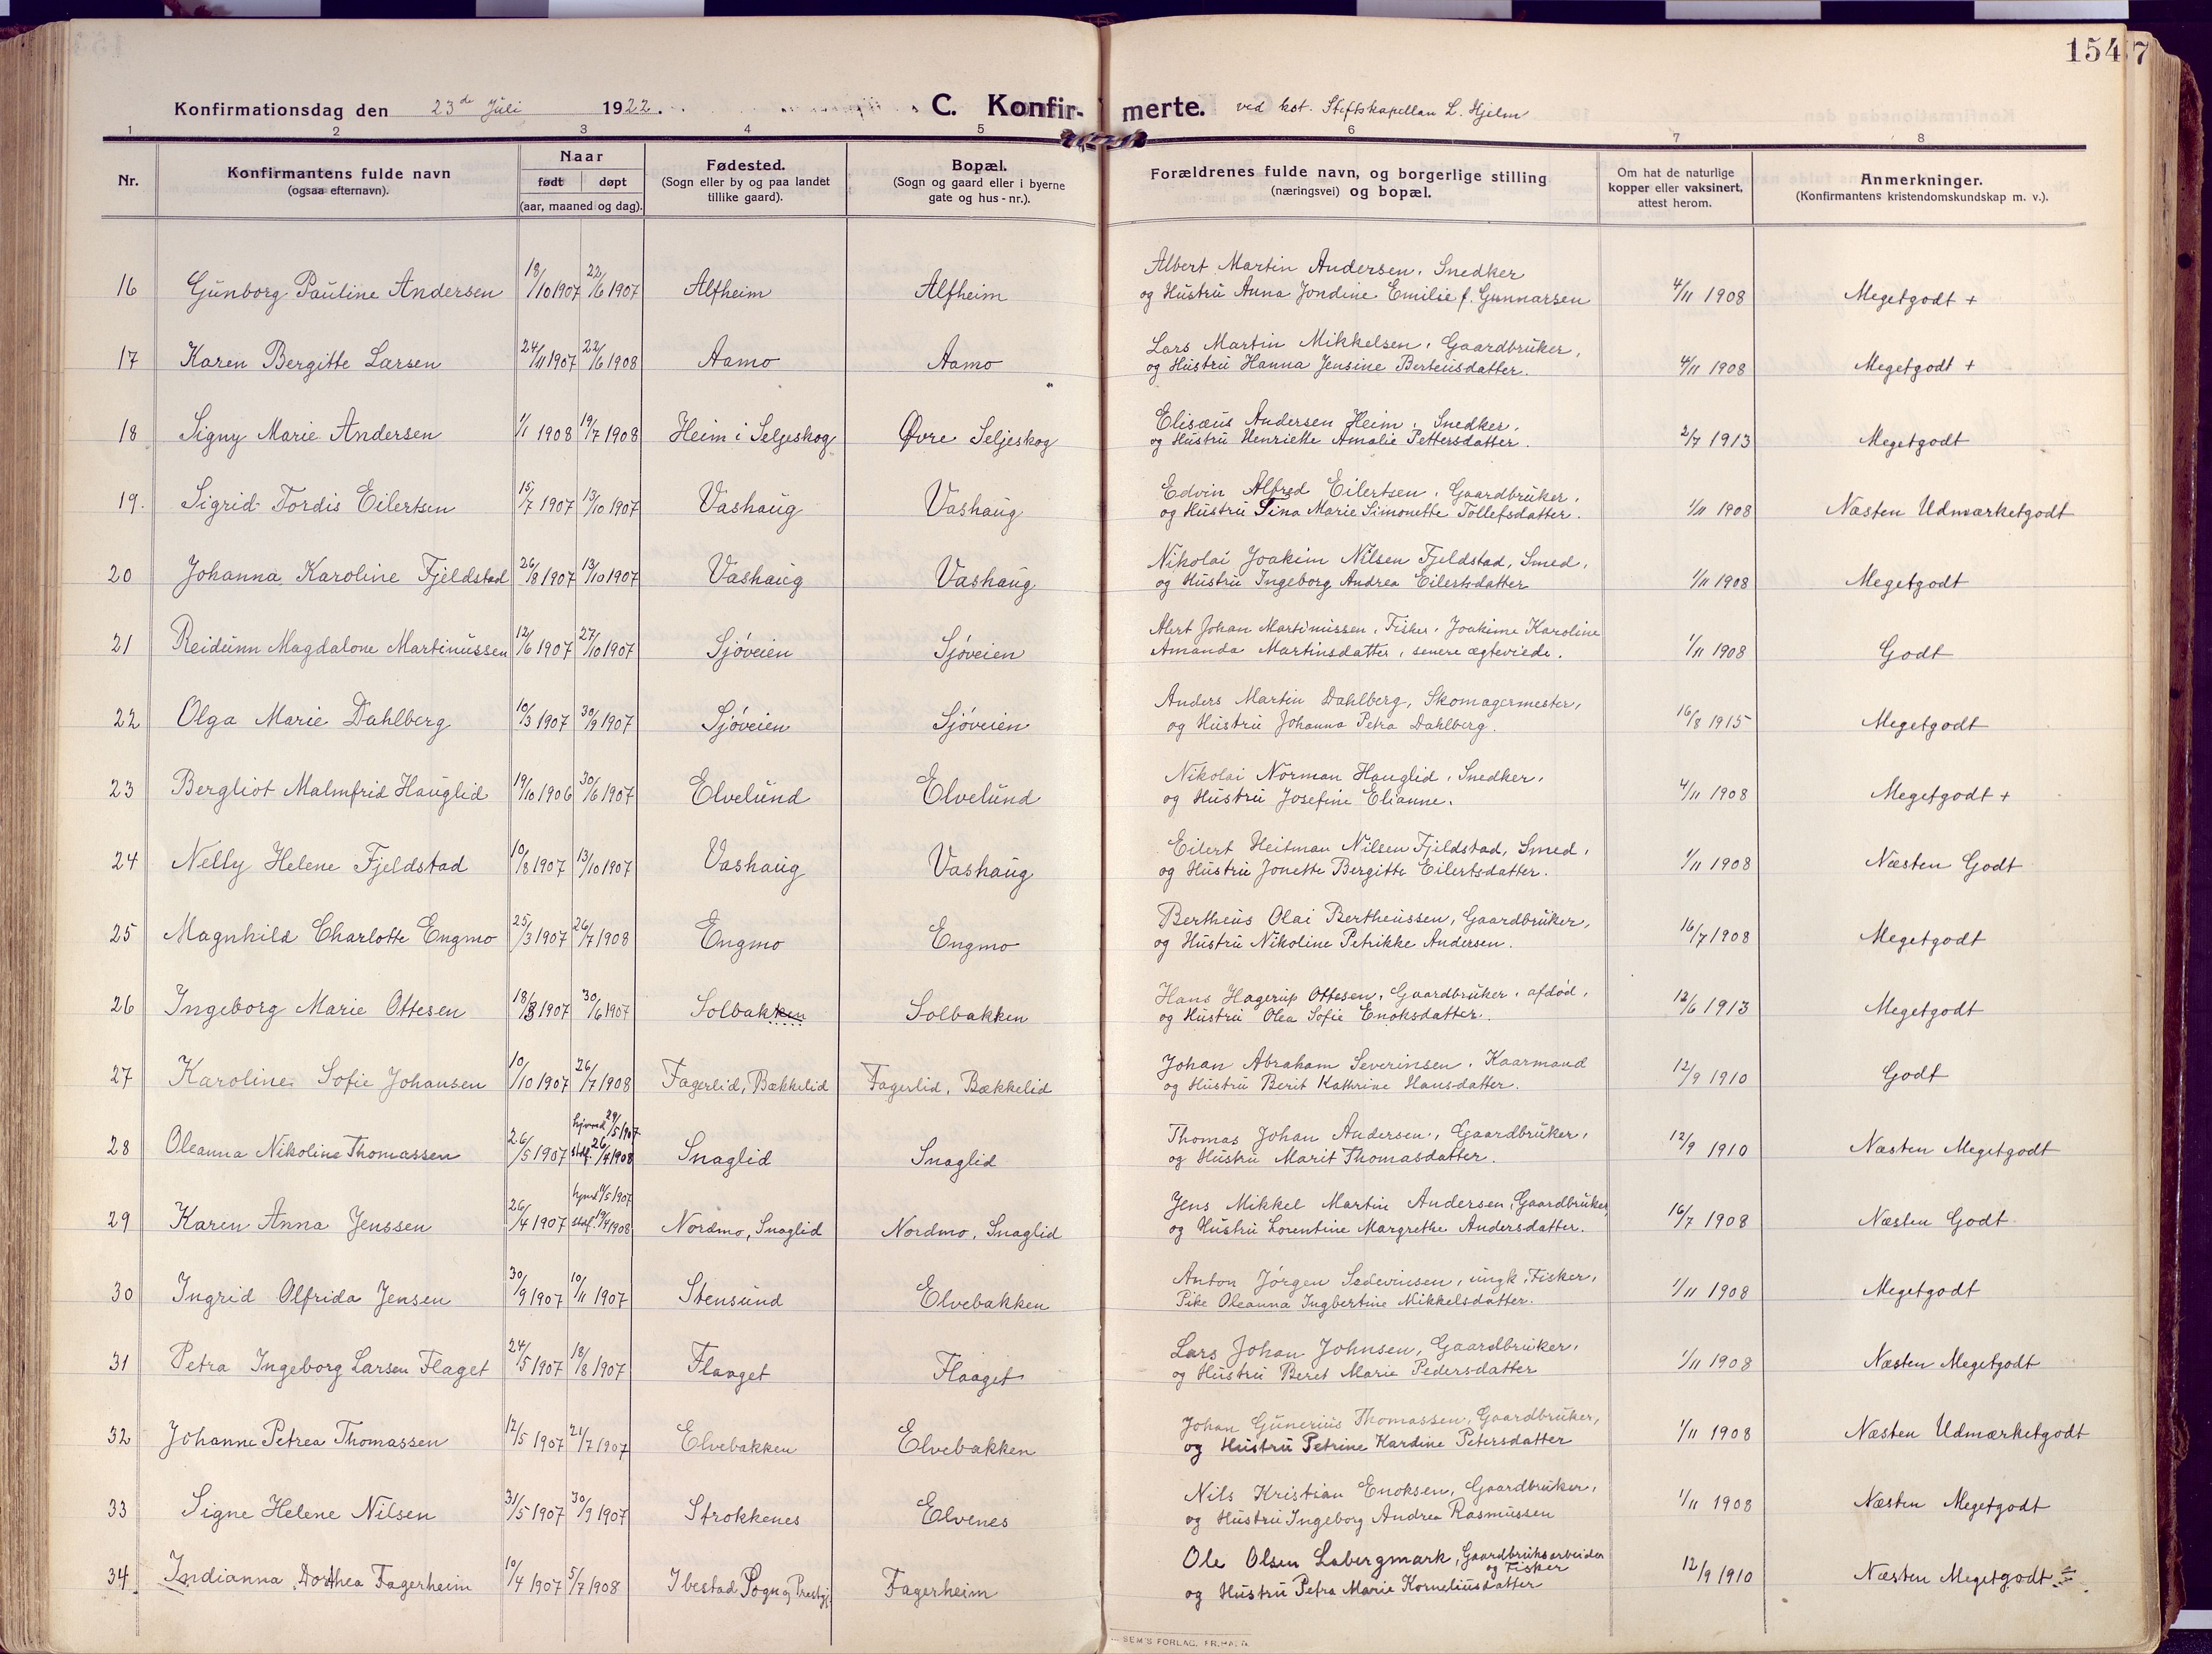 154 7
Konfirmationsdag den 23de Juli 1922. C. Konfir- merte. ved kst. Stiftskapellan L. Hjelm
1 2 3 4 5 6 7 8
Nr. Konfirmantens fulde navn (ogsaa efternavn). Naar født døpt (aar, maaned og dag). Fødested. (Sogn eller by og paa landet tillike gaard). Bopæl. (Sogn og gaard eller i byerne gate og hus-nr.). Forældrenes fulde navn, og borgerlige stilling (næringsvei) og bopæl. Om hat de naturlige kopper eller vaksinert, attest herom. Anmerkninger. (Konfirmantens kristendomskundskap m. v.).
Albert Martin Andersen, Snedker
16 Gunborg Pauline Andersen 18/10 1907 22/6 1907 Alfheim Alfheim og Hustru Anna Jondine Emilie f. Gunnarsen 4/11 1908 Megetgodt +
Lars Martin Mikkelsen, Gaardbruker,
17 Karen Bergitte Larsen 24/11 1907 22/6 1908 Aamo Aamo og Hustru Hanna Jensine Berteusdatter. 4/11 1908 Megetgodt +
Elisæus Andersen Heim, Snedker,
18 Signy Marie Andersen 1/1 1908 19/7 1908 Heim i Seljeskog Øvre Seljeskog og Hustru Henriette Amalie Pettersdatter. 2/7 1913 Megetgodt
Edvin Alfred Eilertsen, Gaardbruker,
19. Sigrid Tordis Eilertsen 15/7 1907 13/10 1907 Vashaug Vashaug og Hustru Tina Marie Simonette Tollefsdatter. 1/11 1908 Næsten Udmærketgodt
Nikolai Joakim Nilsen Fjeldstad, Smed,
20 Johanna Karoline Fjeldstad 26/8 1907 13/10 1907 Vashaug Vashaug og Hustru Ingeborg Andrea Eilertsdatter 1/11 1908 Megetgodt
Alert Johan Martinussen, Fisker, Joakime Karoline
21 Reidunn Magdalone Martinussen 12/6 1907 27/10 1907 Sjøveien Sjøveien Amanda Martinsdatter, senere ægteviede. 1/11 1908 Godt
Anders Martin Dahlberg, Skomagermester,
22 Olga Marie Dahlberg 10/3 1907 30/9 1907 Sjøveien Sjøveien og Hustru Johanna Petra Dahlberg. 16/8 1915 Megetgodt
Nikolai Norman Hauglid, Snedker,
23 Bergliot Malmfrid Hauglid 19/10 1906 30/6 1907 Elvelund Elvelund og Hustru Josefine Elianne. 4/11 1908 Megetgodt +
Eilert Heitman Nilsen Fjeldstad, Smed,
24 Nelly Helene Fjeldstad 10/8 1907 13/10 1907 Vashaug Vashaug og Hustru Jonette Bergitte Eilertsdatter. 1/11 1908 Næsten Godt
Bertheus Olai Bertheussen, Gaardbruker,
25 Magnhild Charlotte Engmo 25/3 1907 26/7 1908 Engmo Engmo og Hustru Nikoline Petrikke Andersen. 16/7 1908 Megetgodt
Hans Hagerup Ottesen, Gaardbruker, afdød,
26 Ingeborg Marie Ottesen 18/3 1907 30/6 1907 Solbakken Solbakken og Hustru Olea Sofie Enoksdatter. 12/6 1913 Megetgodt
Johan Abraham Severinsen, Kaarmand
27 Karoline Sofie Johansen 10/10 1907 26/7 1908 Fagerlid, Bækkelid Fagerlid, Bækkelid og Hustru Berit Kathrine Hansdatter. 12/9 1910 Godt
Thomas Johan Andersen, Gaardbruker,
28 Oleanna Nikoline Thomassen 26/5 1907 29/5 1907 1908 Snaglid Snaglid og Hustru Marit Thomasdatter. 12/9 1910 Næsten Megetgodt
Jens Mikkel Martin Andersen, Gaardbruker,
29 Karen Anna Jenssen 26/4 1907 1907 stdf. 19/4 1908 Nordmo, Snaglid Nordmo, Snaglid og Hustru Lorentine Margrethe Andersdatter. 16/7 1908 Næsten Godt
Anton Jørgen Sedevinsen, ungk. Fisker,
30 Ingrid Olfrida Jensen 30/9 1907 10/11 1907 Stensund Elvebakken Pike Oleanna Ingbertine Mikkelsdatter. 1/11 1908 Megetgodt
Lars Johan Johnsen, Gaardbruker,
31 Petra Ingeborg Larsen Flaget 24/5 1907 18/8 1907 Flaaget Flaaget og Hustru Beret Marie Pedersdatter 1/11 1908 Næsten Megetgodt
Johan Gunerius Thomassen, Gaardbruker,
32 Johanne Petrea Thomassen 12/5 1907 21/7 1907 Elvebakken Elvebakken og Hustru Petrine Kardine Petersdatter 1/11 1908 Næsten Udmærketgodt
Nils Kristian Enoksen, Gaardbruker,
33 Signe Helene Nilsen 31/5 1907 30/9 1907 Strokkenes Elvenes og Hustru Ingeborg Andrea Rasmussen 1/11 1908 Næsten Megetgodt
Ole Olsen Labergmark, Gaardbruksarbeider og Fisker
34 Indianna Dorthea Fagerheim 10/4 1907 5/7 1908 Ibestad Sogn og Prestgj. Fagerheim og Hustru Petra Marie Korneliusdatter 12/9 1910 Næsten Megetgodt
SEM'S FORLAG, FR.HALD.